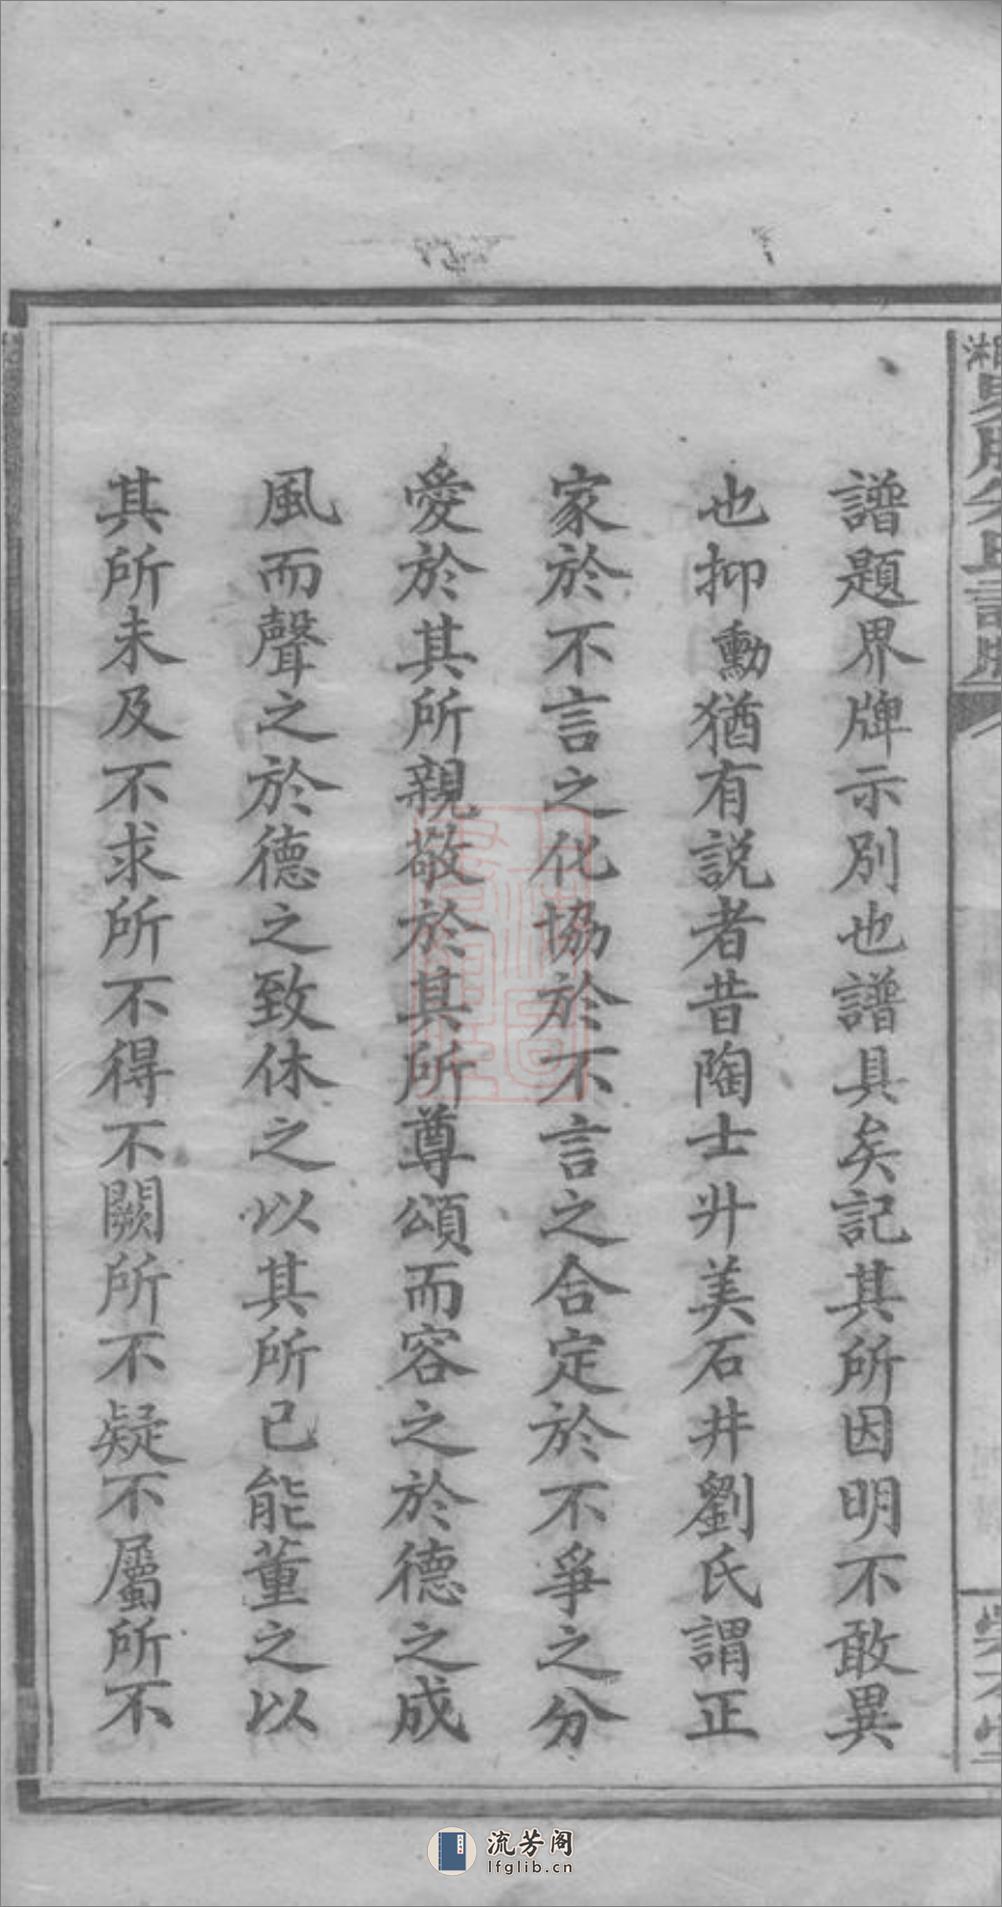 譜題界牌示別也譜具矣記其所因明不敢異
也抑勳猶有説者昔陶士升美石井劉氏謂正
家於不言之化協於不言之合定於不爭之分
愛於其所親敬於其所尊頌而容之於德之成
風而聲之於德之致休之以其所已能董之以
其所未及不求所不得不闕所不疑不屬所不
流芳阁
lfglib.cn